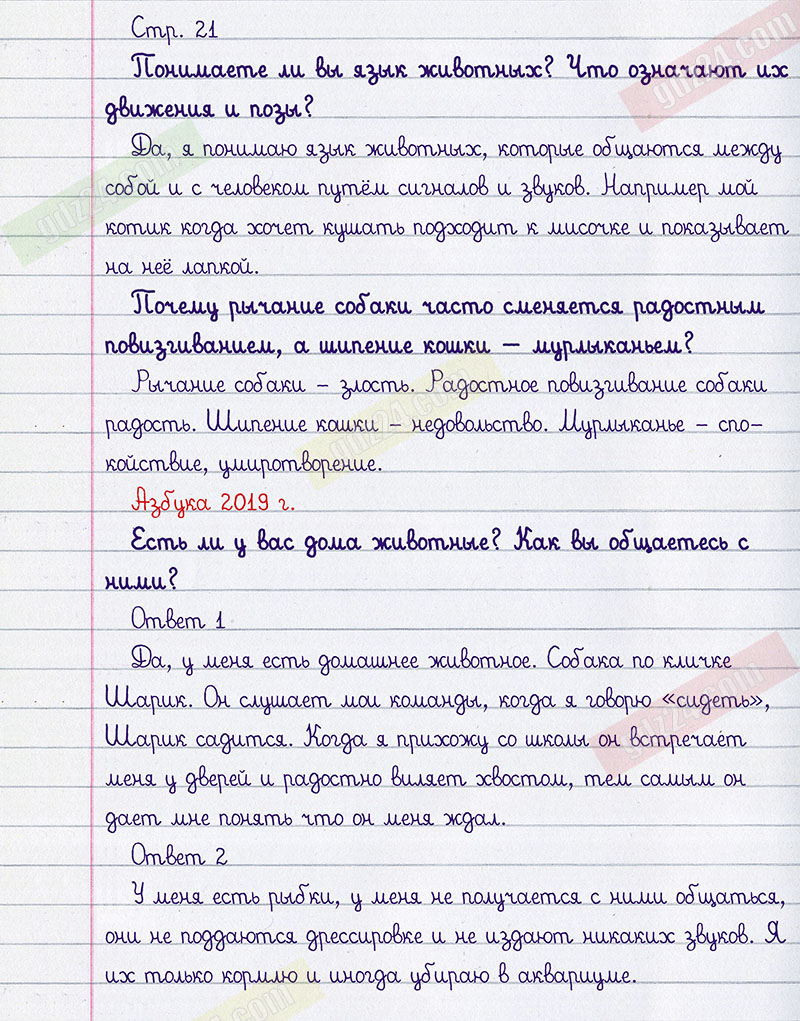 Стр. 21
Понимаете ли вы язык животных? Что означают их
движения и позы?
Да, я понимаю язык животных, которые общаются между
собой и с человеком путём сигналов и звуков. Например мой
котик когда хочет кушать подходит к мисочке и показывает
на неё лапкой.
Почему рычание собаки часто сменяется радостным
повизгиванием, а шипение кошки — мурлыканьем?
Рычание собаки – злость. Радостное повизгивание собаки
радость. Шипение кошки – недовольство. Мурлыканье – спо-
койствие, умиротворение.
Азбука 2019 г.
Есть ли у вас дома животные? Как вы общаетесь с
ними?
Ответ 1
Да, у меня есть домашнее животное. Собака по кличке
Шарик. Он слушает мои команды, когда я говорю «сидеть»,
Шарик садится. Когда я прихожу со школы он встречает
меня у дверей и радостно виляет хвостом, тем самым он
дает мне понять что он меня ждал.
Ответ 2
У меня есть рыбки, у меня не получается с ними общаться,
они не поддаются дрессировке и не издают никаких звуков. Я
их только кормлю и иногда убираю в аквариуме.
gdz24.com
gdz24.com
gdz24.com
gdz24.com
gdz24.com